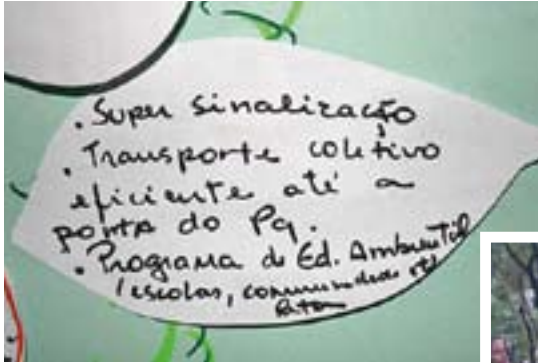 . Super sinalização
. Transporte coletivo
eficiente até a
porta do Pq.
. Programa de Ed. Ambiental
/escolas, comunidade